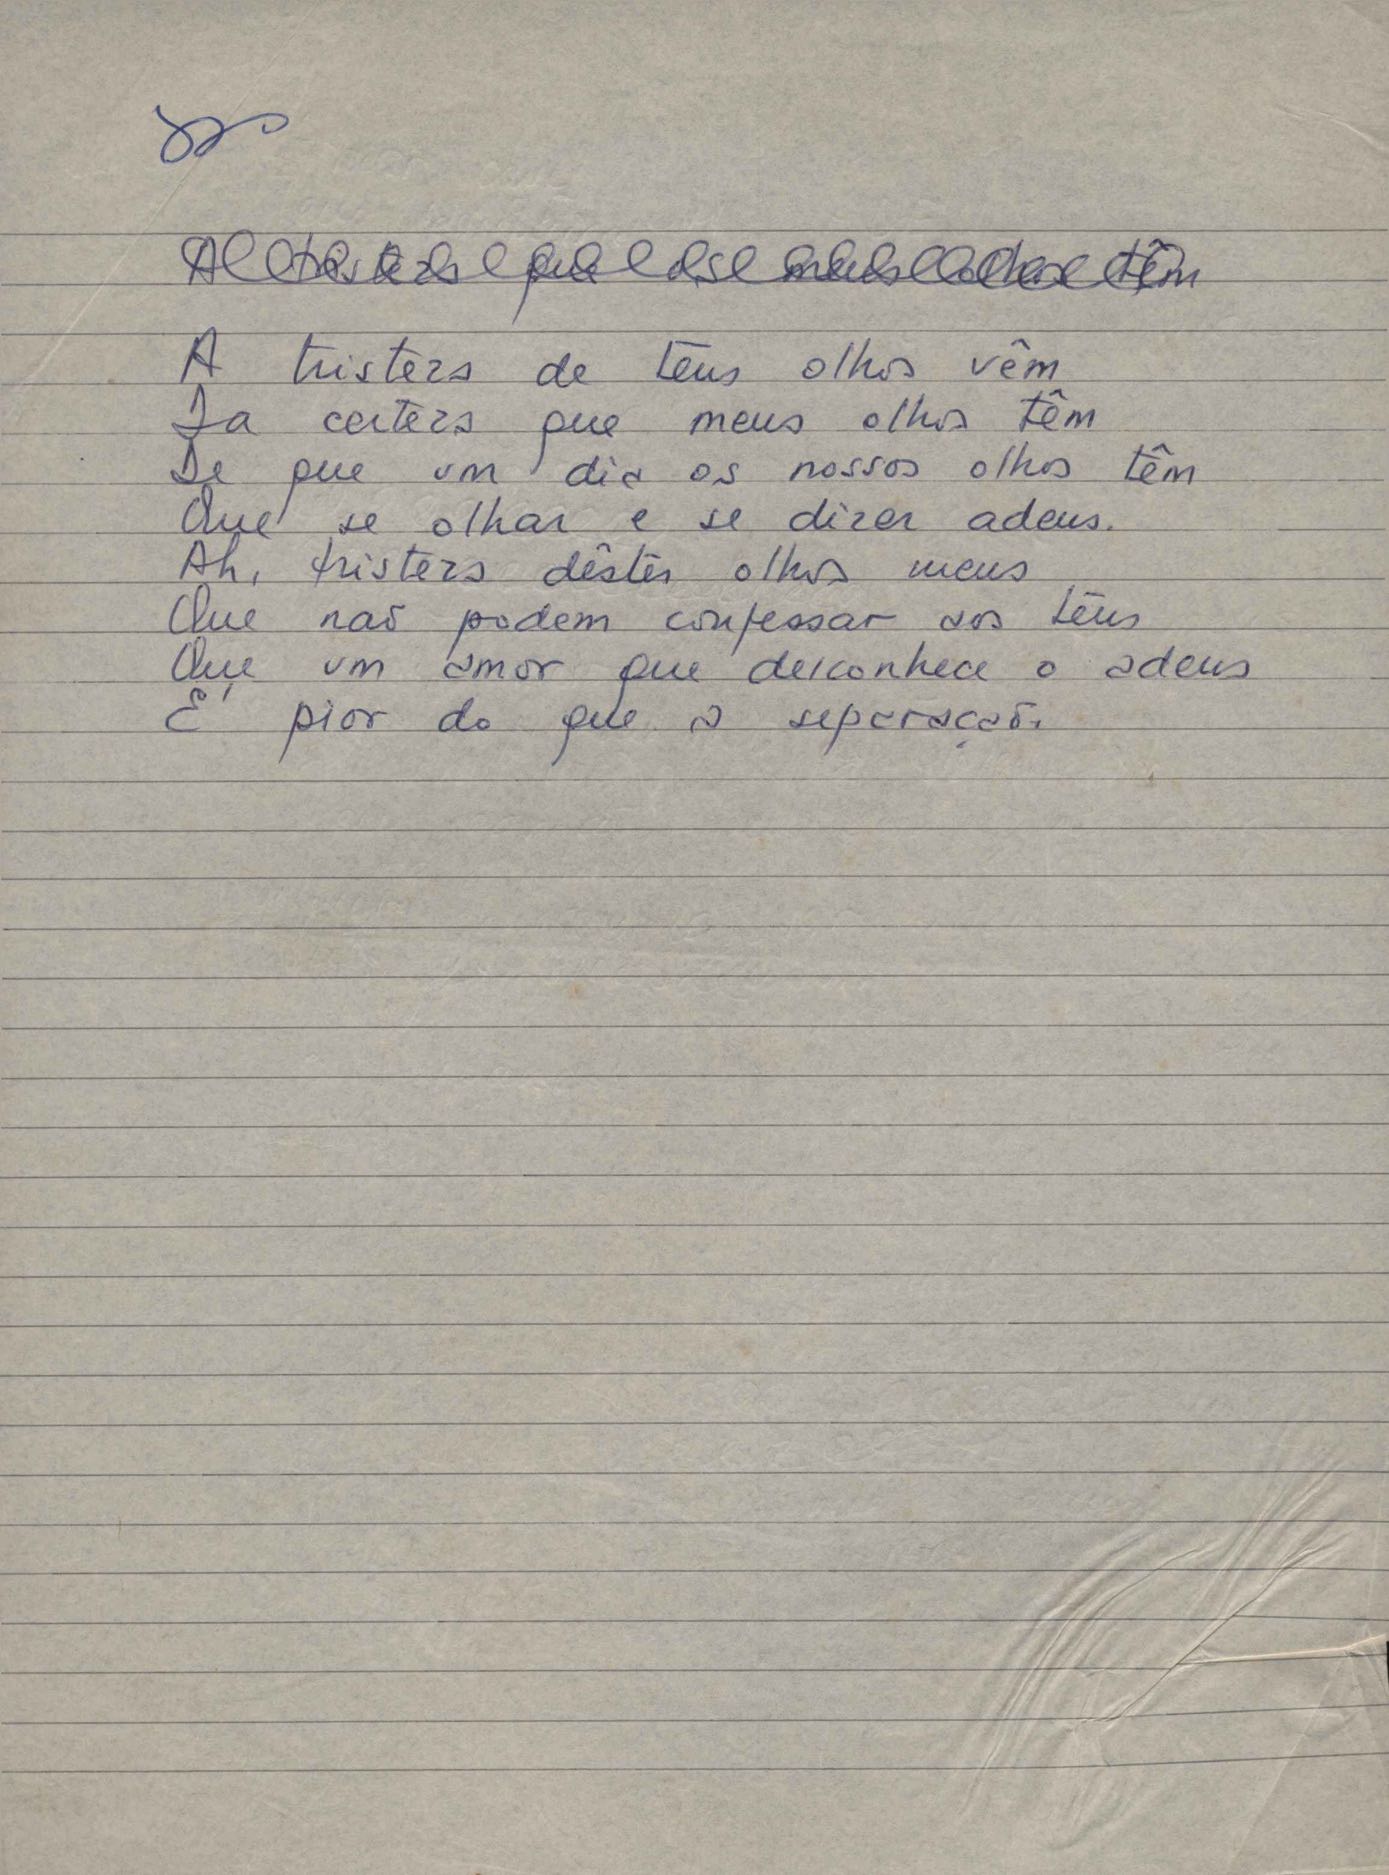 A tristeza que os meus olhos têm
A tristeza de têus olhos vêm
Da certeza que meus olhos têm
De que um dia os nossos olhos têm
Que se olhar e se dizer adeus.
Ah, tristeza dêstes olhos meus
Que não podem confessar aos têus
Que um amor que desconhece o adeus
É pior do que a separação.